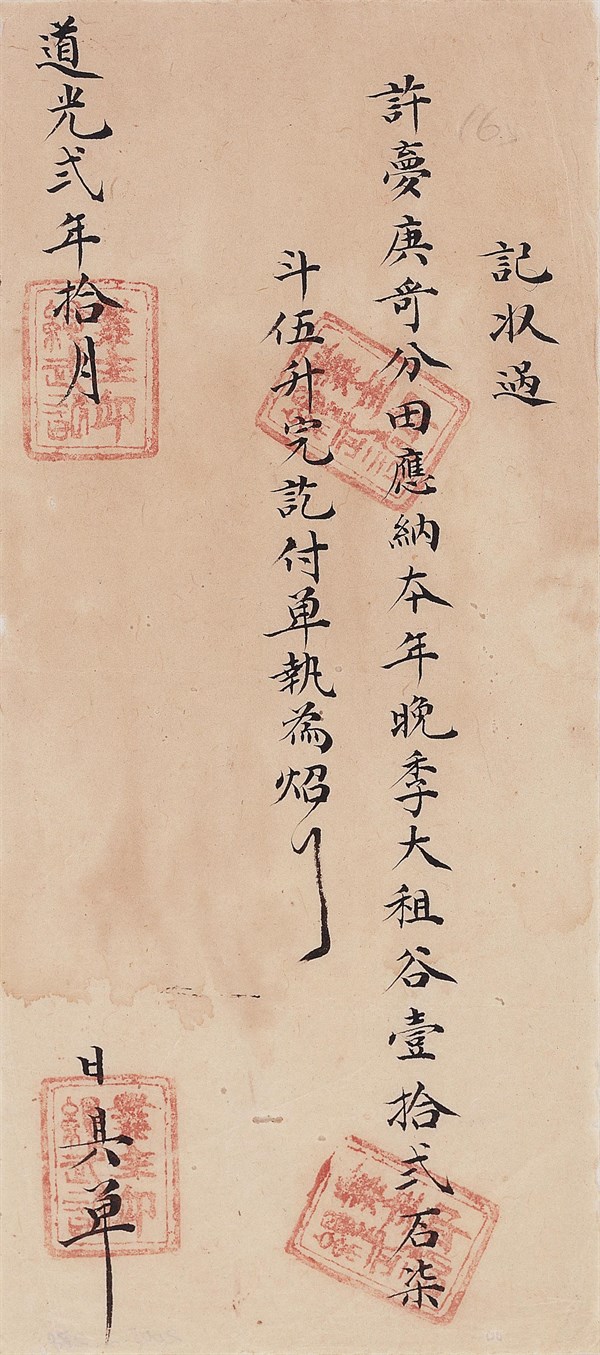 記収過
許夣庚竒分田應納本年晚季大租谷壹拾弍石柒
斗伍升完訖付单執為炤
道光弍年拾月 日具单